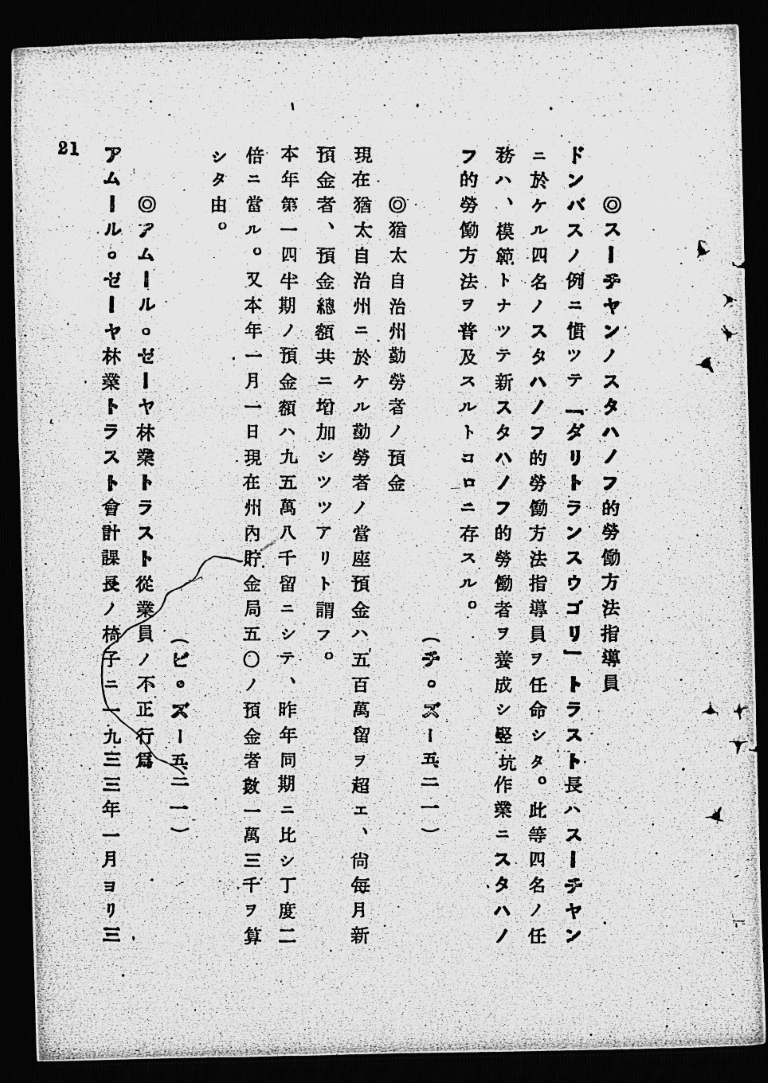 ◎スーチヤンノスタハノフ的勞働方法指導員
ドンバスノ例ニ慣ツテ「ダリトランスウゴリ」トラスト長ハスーチヤン
ニ於ケル四名ノスタハノフ的勞働方法指導員ヲ任命シタ。此等四名ノ任
務ハ、模範トナツテ新スタハノフ的勞働者ヲ養成シ竪坑作業ニスタハノ
フ的勞働方法ヲ普及スルトコロニ存スル。
(チ。ズー五、二一)
◎猶太自治州勤勞者ノ預金
現在猶太自治州ニ於ケル勤勞者ノ當座預金ハ五百萬留ヲ超エ、尙每月新
預金者、預金總額共ニ增加シツツアリト謂フ。
本年第一四半期ノ預金額ハ九五萬八千留ニシテ、昨年同期ニ比シ丁度二
倍ニ當ル。又本年一月一日現在州內貯金局五〇ノ預金者數一萬三千ヲ算
シタ由。
(ビ。ズー五、二一)
◎アムール。ゼーヤ林業トラスト從業員ノ不正行爲
アムール。ゼーヤ林業トラスト會計課長ノ椅子ニ一九三三年一月ヨリ三
21